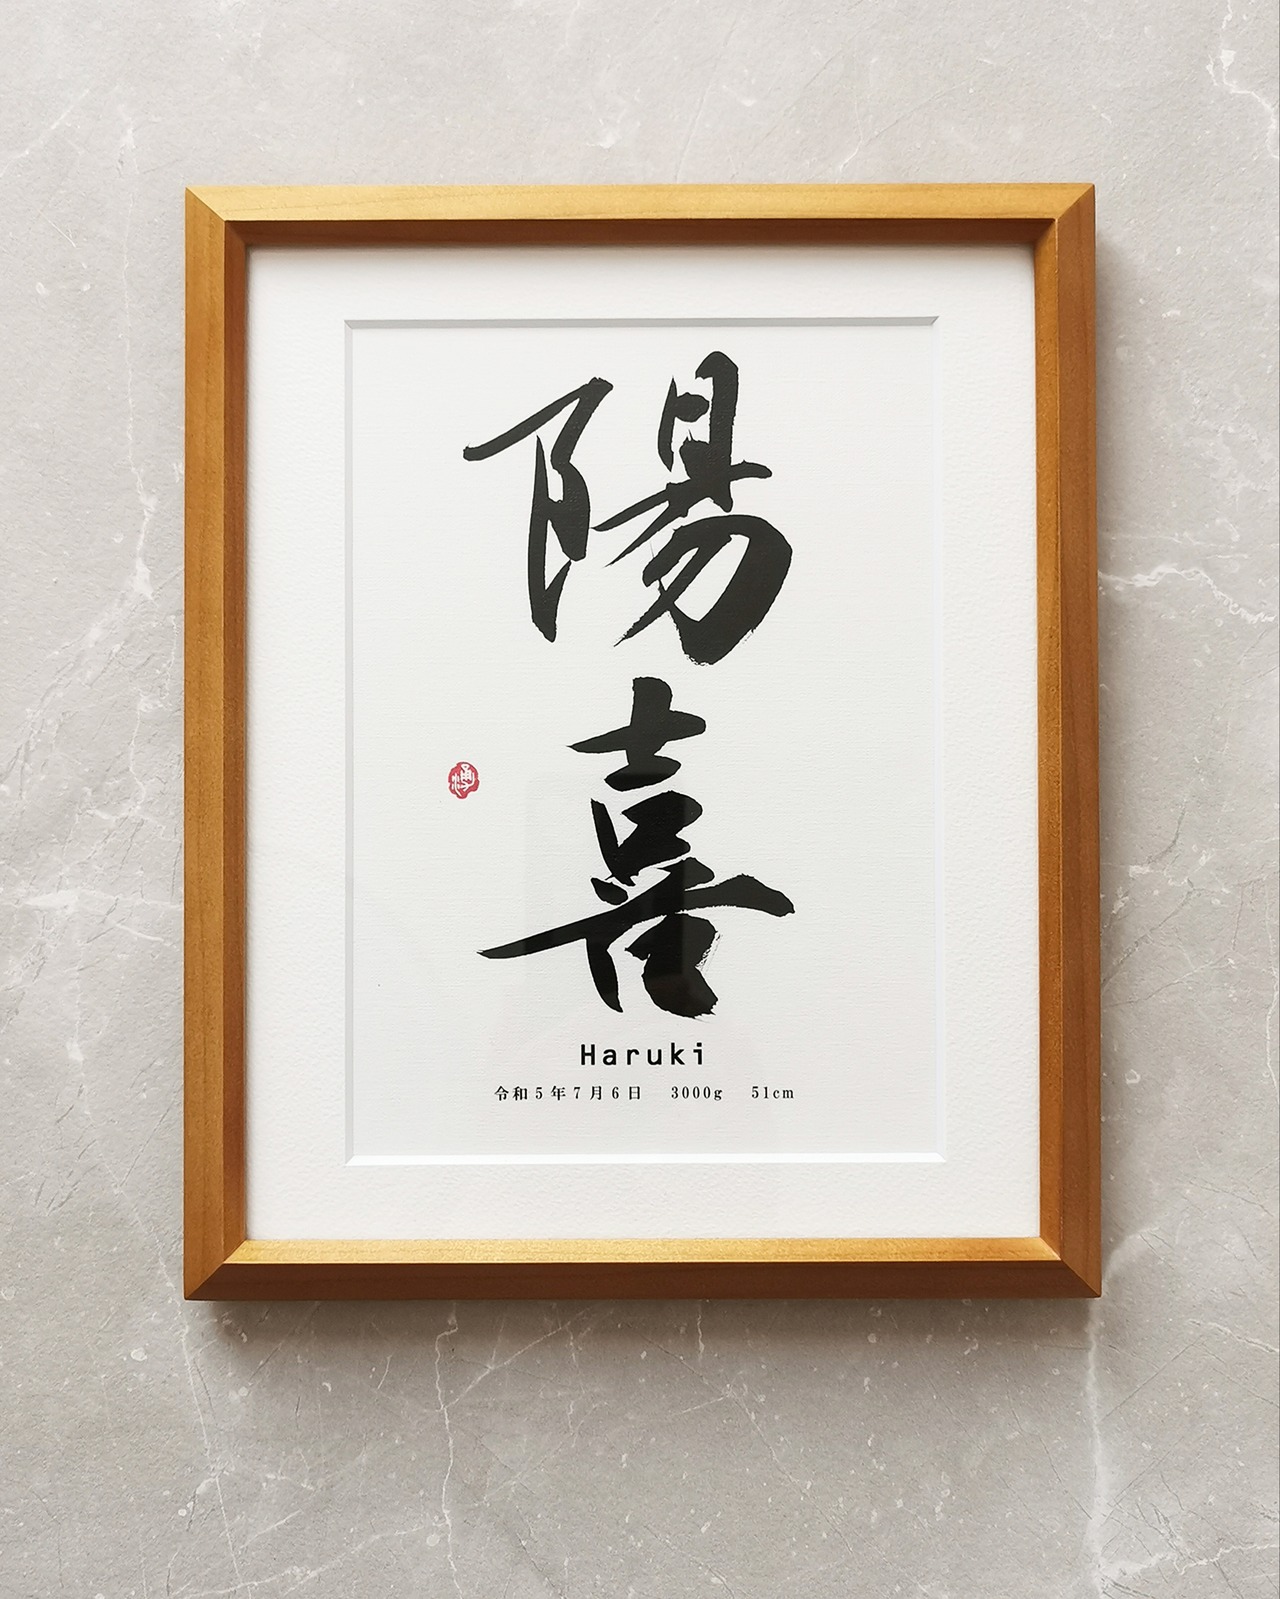 陽喜
Haruki
令和5年7月6日 3000g 51cm